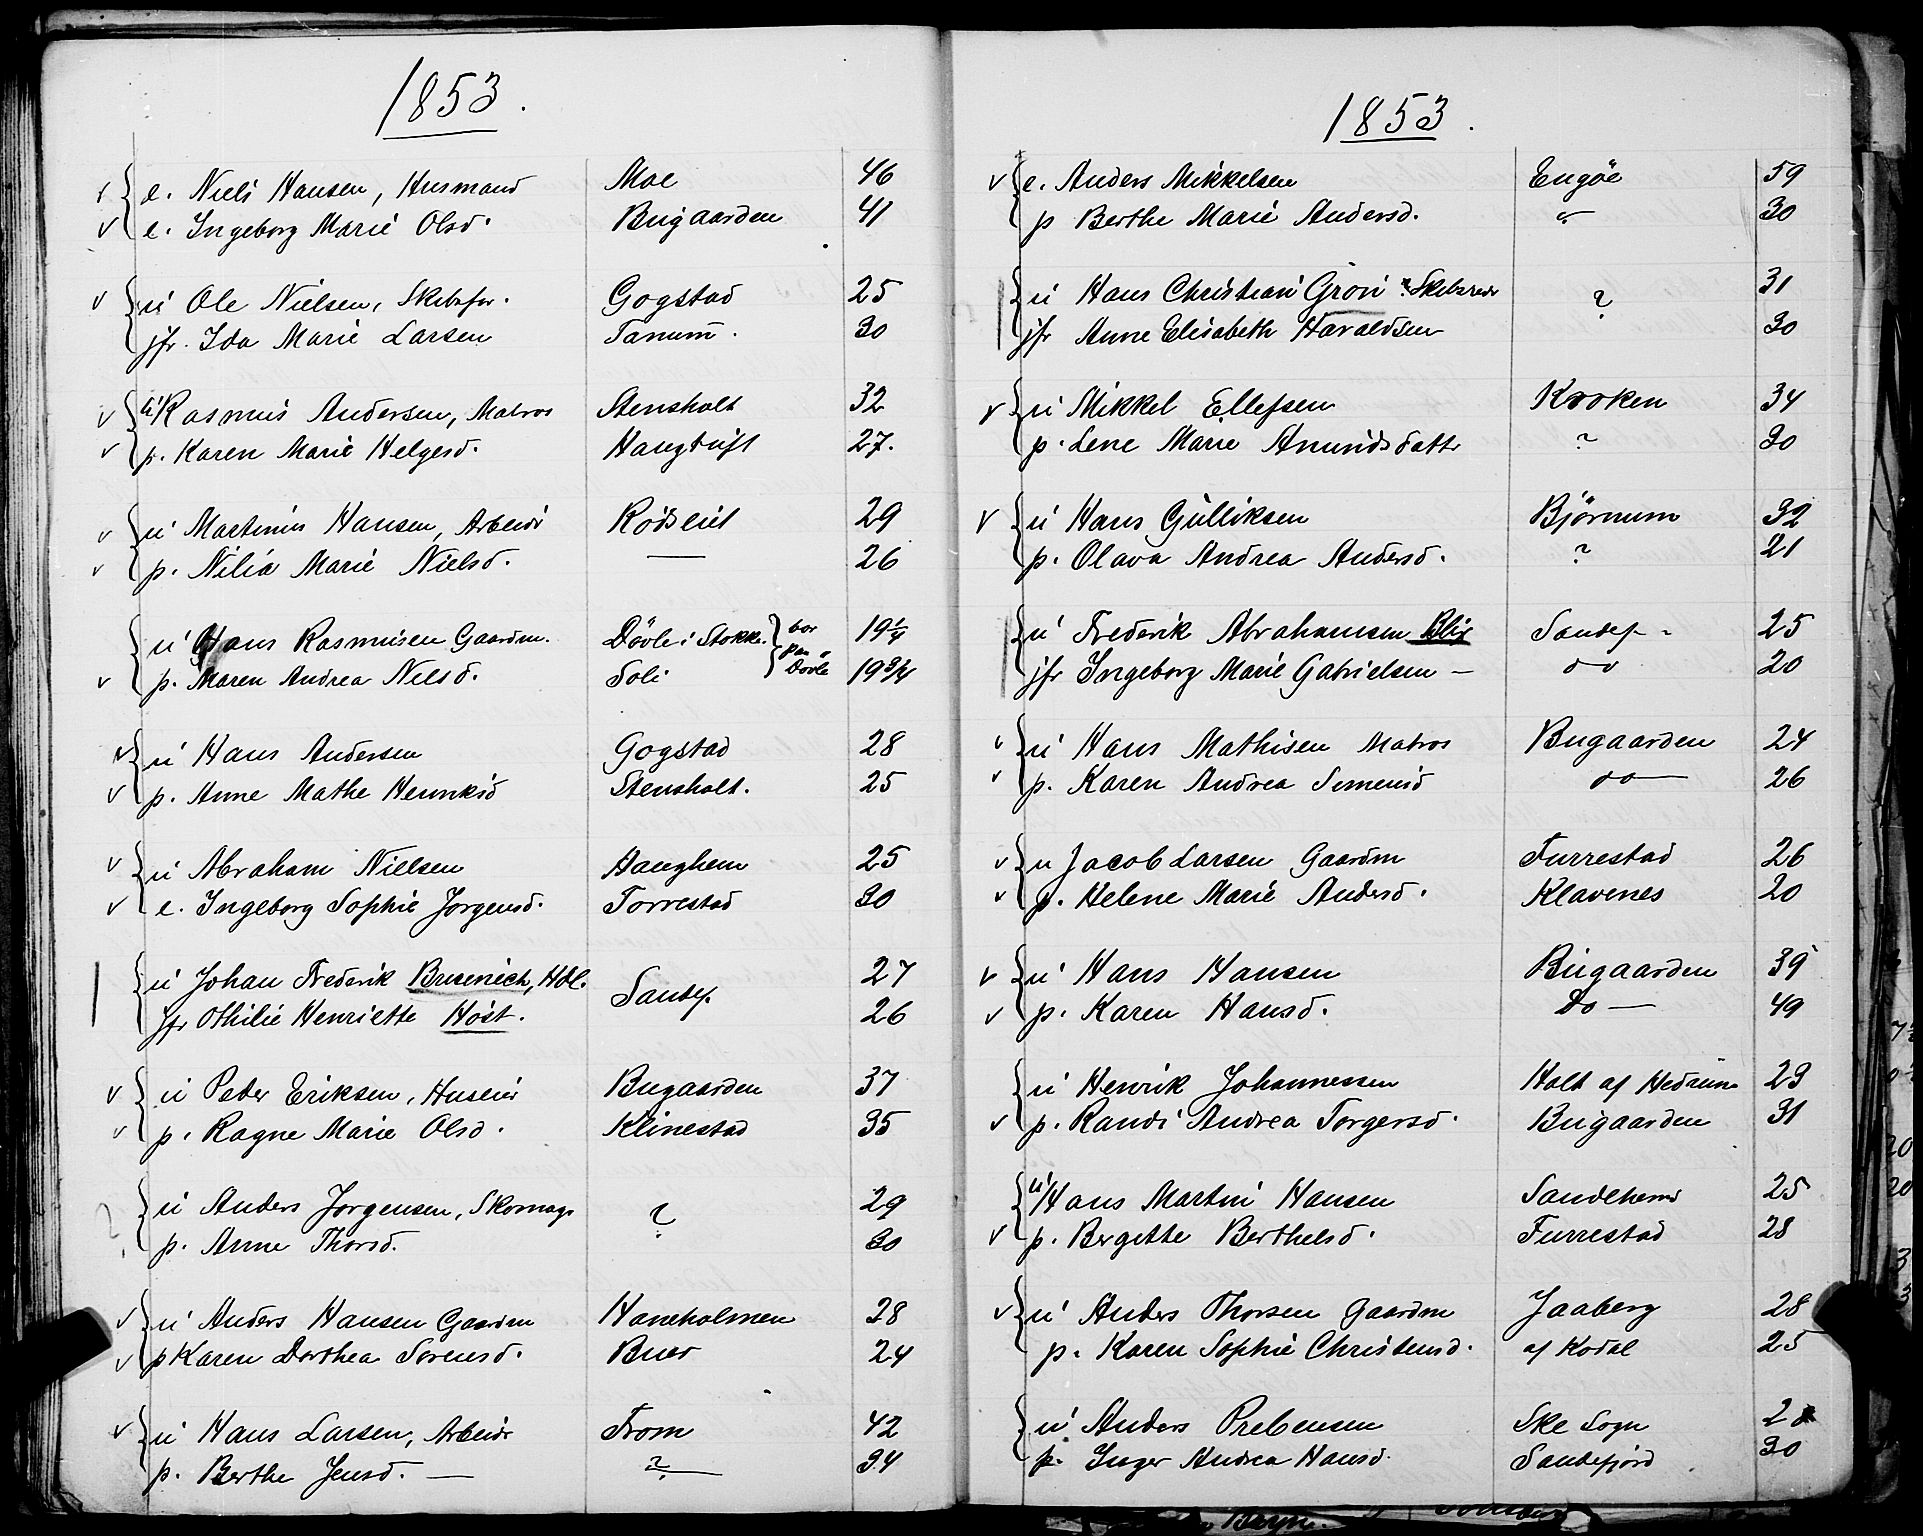 1853.
e. Niels Hansen, Husmand Moe 46
e. Ingeborg Marie Olsd. Bugaarden 41
u Ole Nielsen, Skibsfør. Gogstad 25
jfr. Ida Marie Larsen Tanum. 30
u Rasmus Andersen, Matros Stensholt 32
p. Karen Marie Helgesd. Haugtuft 27.
u Martinius Hansen, Arbeidr Rødseil 29
p. Nilia Marie Nielsd. — 26
u Hans Rasmusen Gaardm. Døvle i Stokke. bor paa Døvle 19 1/4
p. Maren Andrea Nilsd. Soli 19 3/4
u Hans Andersen Gogstad 28
p. Anne Mathe Henriksd Stensholt. 25
u Abraham Nielsen Haughem 25
e. Ingeborg Sophie Jørgensd. Torrestad 30
u Johan Frederik Brusenich, Hdl. Sandef. 27
jfr Othilie Henriette Høst. 26
u Peder Eriksen, Huseier Bugaarden 37
p. Ragne Marie Olsd. Klinestad 35
u Anders Jørgensen, Skomagr ? 29
p. Anne Thorsd. 30
u Anders Hansen Gaardm Haneholmen 28
p Karen Dorthea Sørensd. Buer 24
u Hans Larsen, Arbeidr From 42
p. Berthe Jensd. — ? 34
1853.
e. Anders Mikkelsen Engøe 59
p Berthe Marie Andersd. " 30
u Hans Christian Grøn ? Skibsredr ? 31
jfr Anne Elisabeth Haraldsen 30
u Mikkel Ellefsen Kroken 34
p. Lene Marie Amundsdattr ? 30
u Hans Gulliksen Bjørnum 32
p. Olava Andrea Andersd. ? 21
u Frederik Abrahamsen Blix Sandef - 25
jfr Ingeborg Marie Gabrielsen — do 20
u Hans Mathisen Matros Bugaarden 24
p. Karen Andrea Simensd do — 26
u Jacob Larsen Gaardm Furrestad 26
p. Helene Marie Andersd. Klavenes 20
u Hans Hansen Bugaarden 39
p. Karen Hansd. Do — 49
u Henrik Johannessen Holt af Hedrum 23
p. Randi Andrea Torgersd. Bugaarden 31
u Hans Martin Hansen Sandehem 25
p. Bergitte Berthelsd. Furrestad 28
u Anders Thorsen Gaardm Jaaberg 28
p. Karen Sophie Christensd. af Kodal 25
u Anders Prebensen Ske Sogn
p. Inger Andrea Hansd. Sandefjord 30